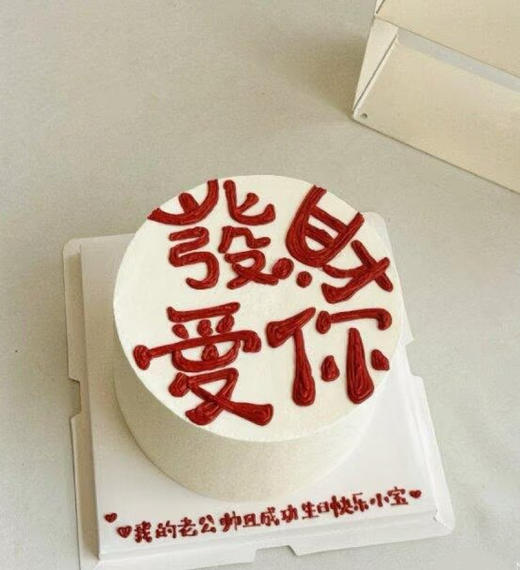 發財
愛你
我的老公帅且成功生日快乐小宝